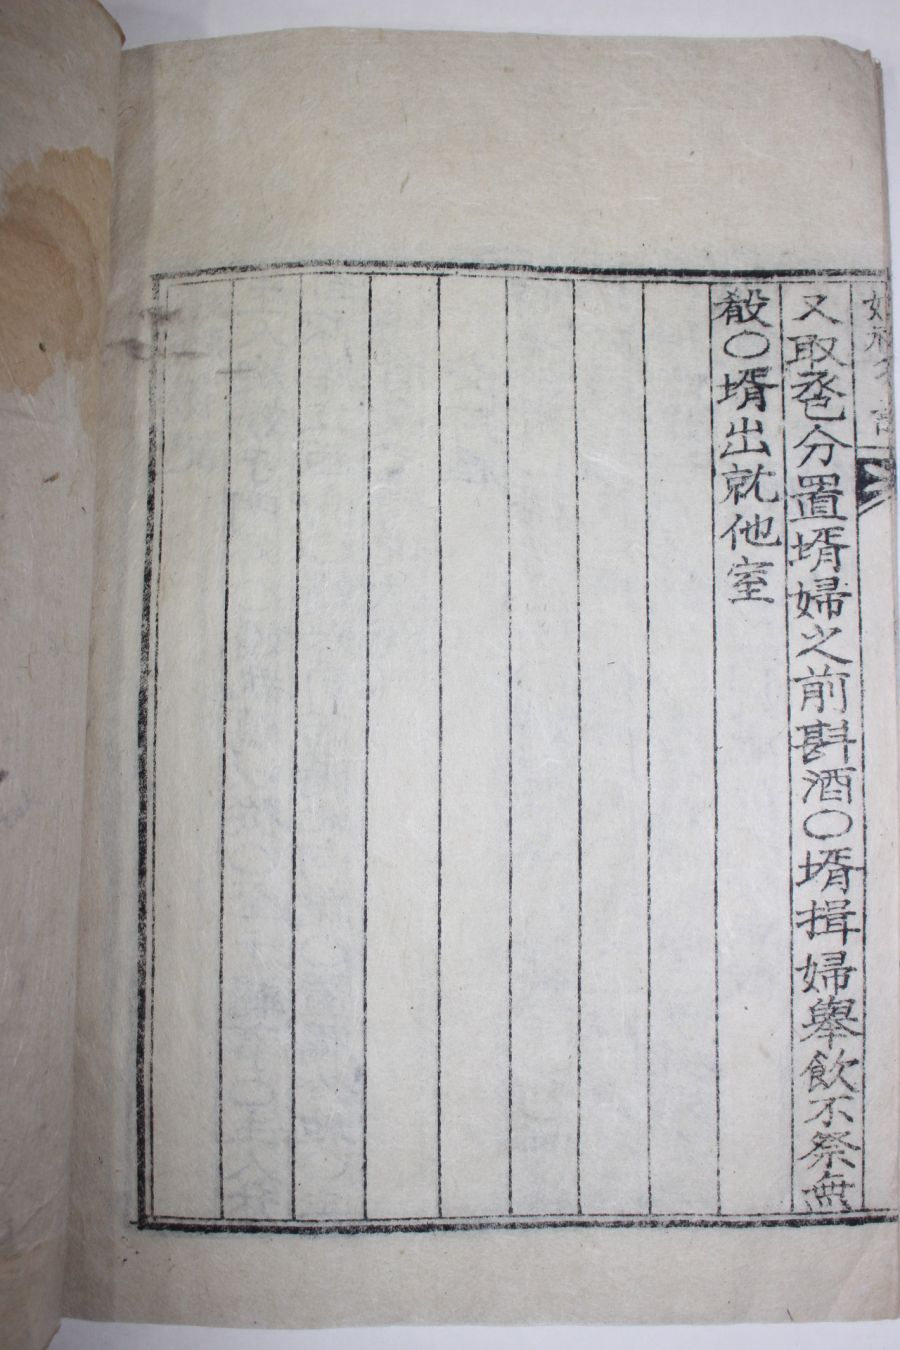 又取卺分置壻婦之前斟酒〇壻揖婦舉飮不祭無
殽〇壻出就他室